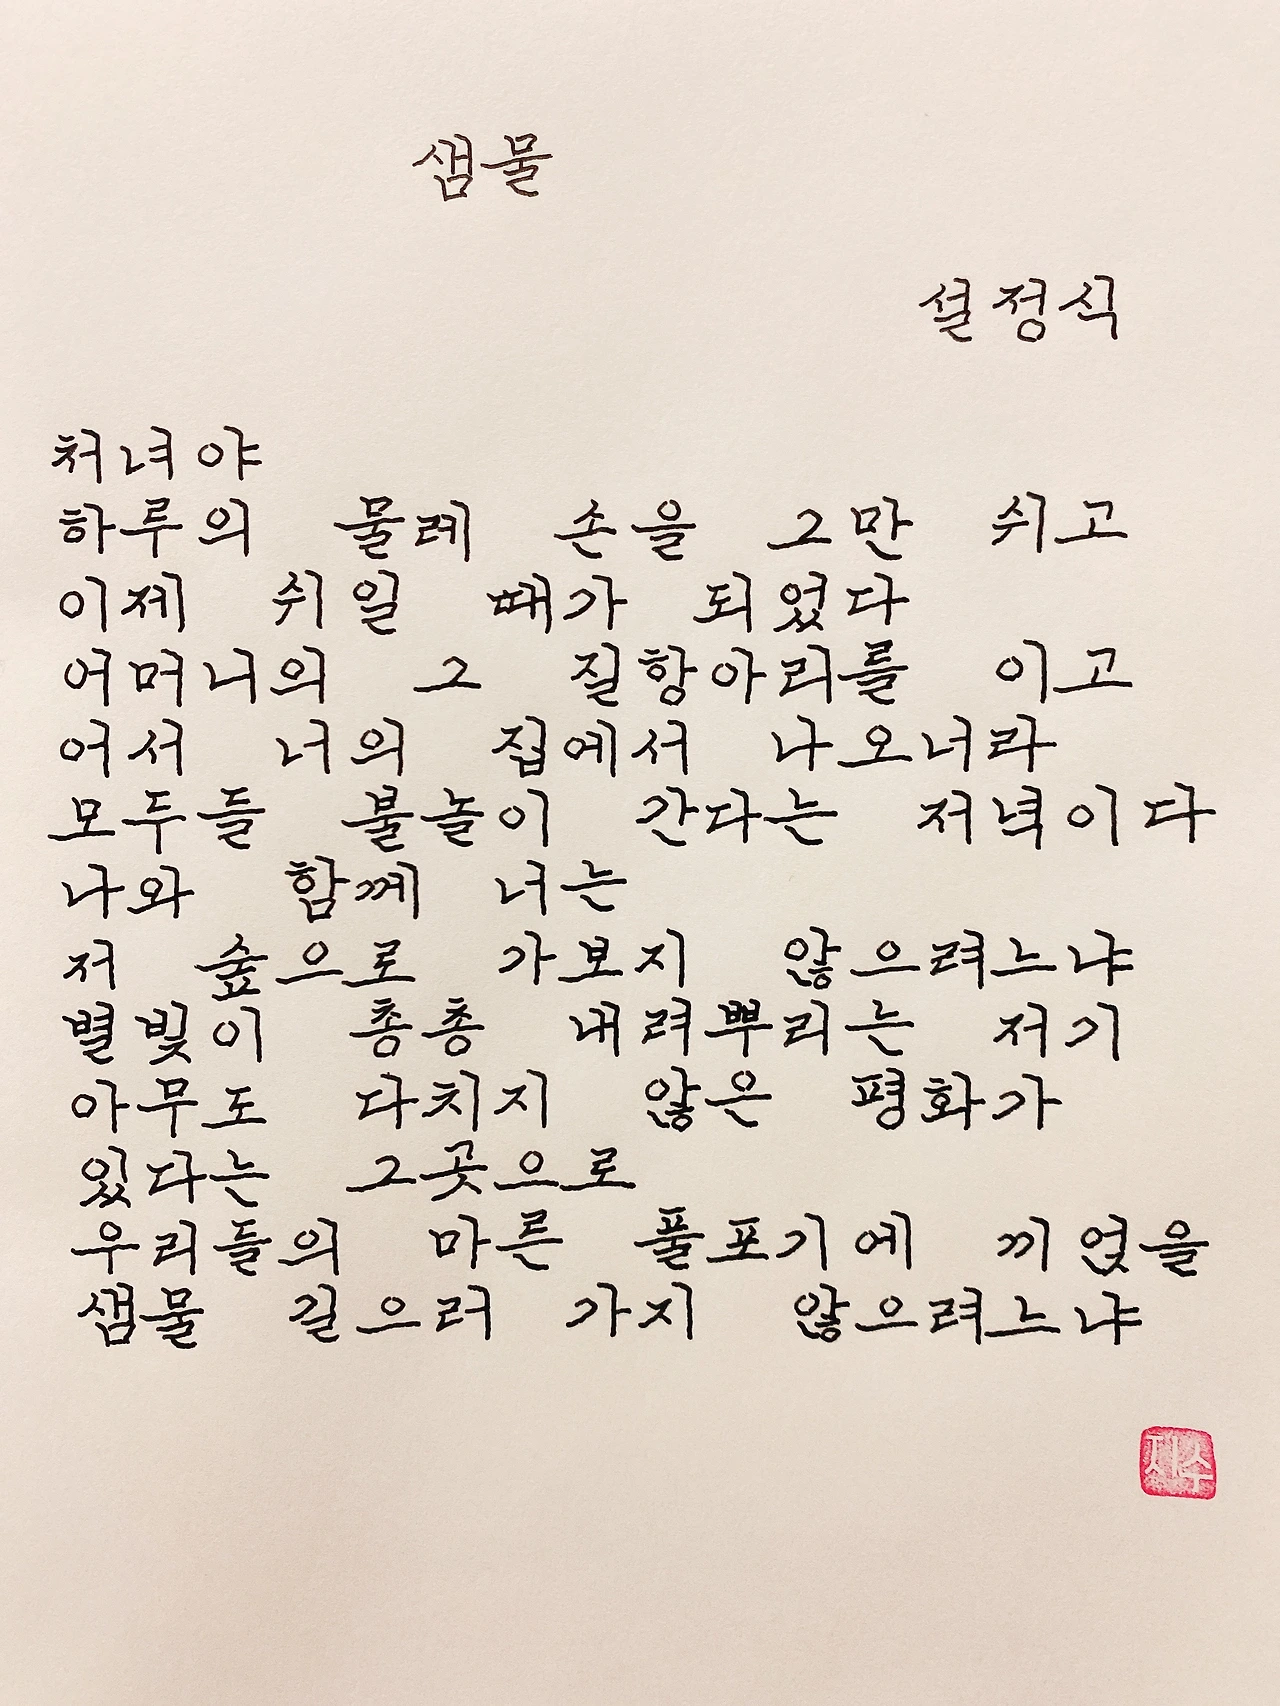 샘물
설정식
처녀야
하루의 물레 손을 그만 쉬고
이제 쉬일 때가 되었다
어머니의 그 질항아리를 이고
어서 너의 집에서 나오너라
모두들 불놀이 간다는 저녁이다
나와 함께 너는
저 숲으로 가보지 않으려느냐
별빛이 총총 내려뿌리는 저기
아무도 다치지 않은 평화가
있다는 그곳으로
우리들의 마른 풀포기에 끼얹을
샘물 길으러 가지 않으려느냐
지수